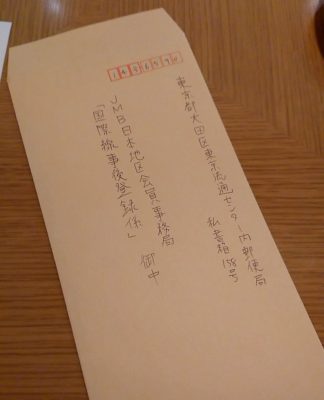 1438691
東京都大田区東京流通センター内郵便局
私書箱158号
JMB日本地区会員事務局 御中
「国際線事後登録係」